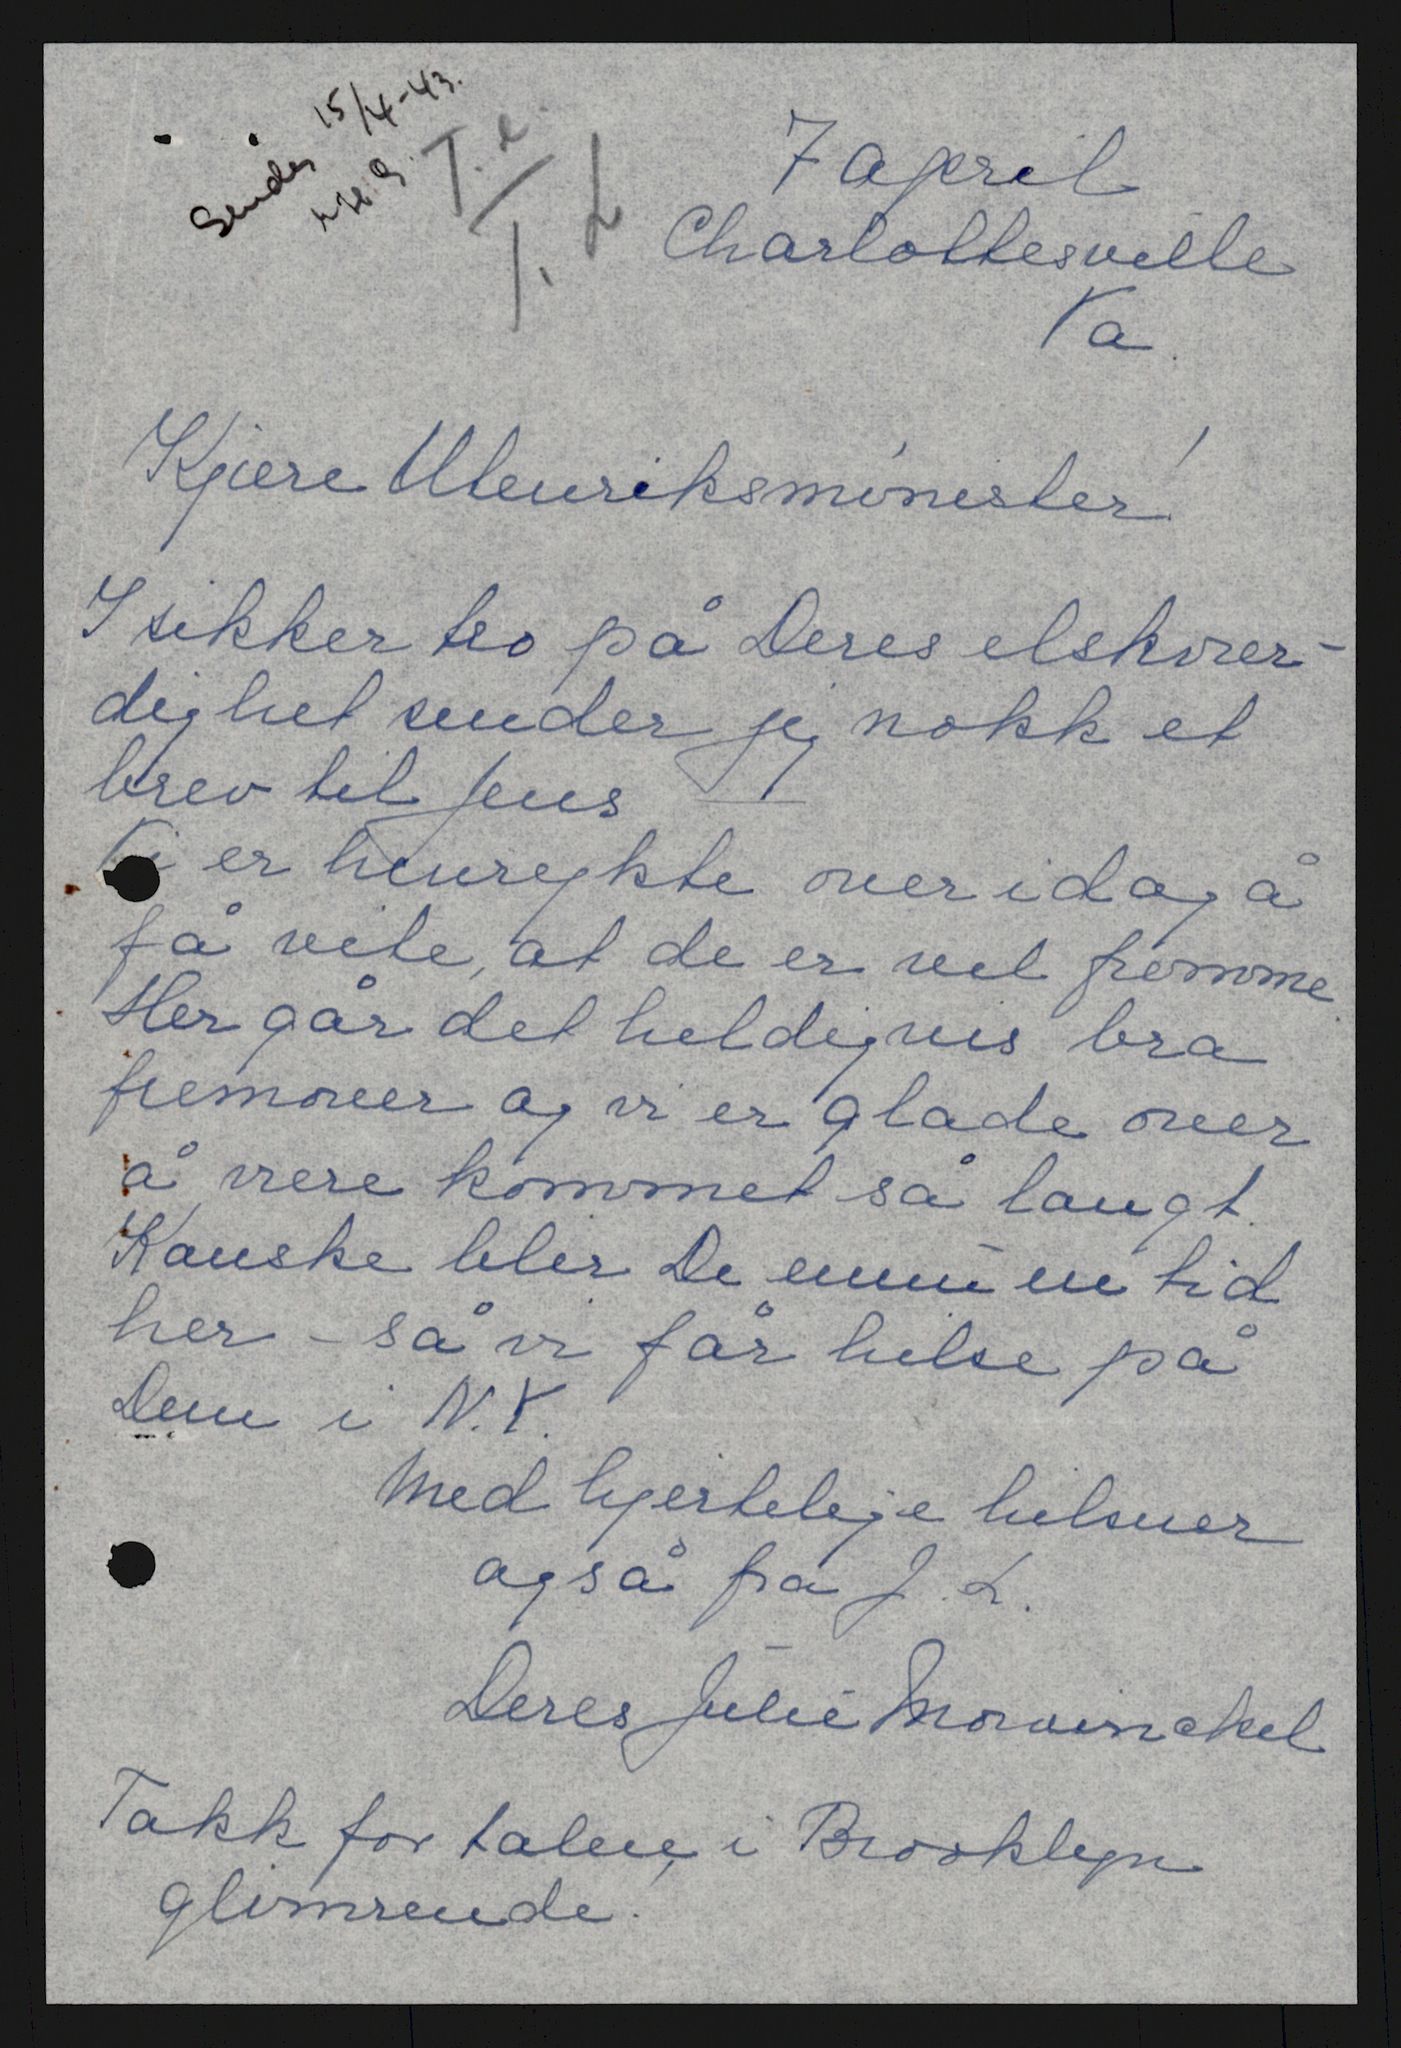 Sendes 15/4-43.
7 april
Charlottesville
Va.
Kjære Utenriksminister!
I sikker tro på Deres elskver-
dighet sender jeg nokk et
brev til Jens
Vi er henrykte over idag å
få vite, at de er vel fremme
Her går det heldigvis bra
fremover og vi er glade over
å være kommet så langt.
Kanske blir De ennu en tid
her – så vi får hilse på
Dem i N.Y.
Med hjertelige hilsner
også fra J. L.
Deres Julie Mowinckel
Takk for talen, i Brooklyn
glimrende!